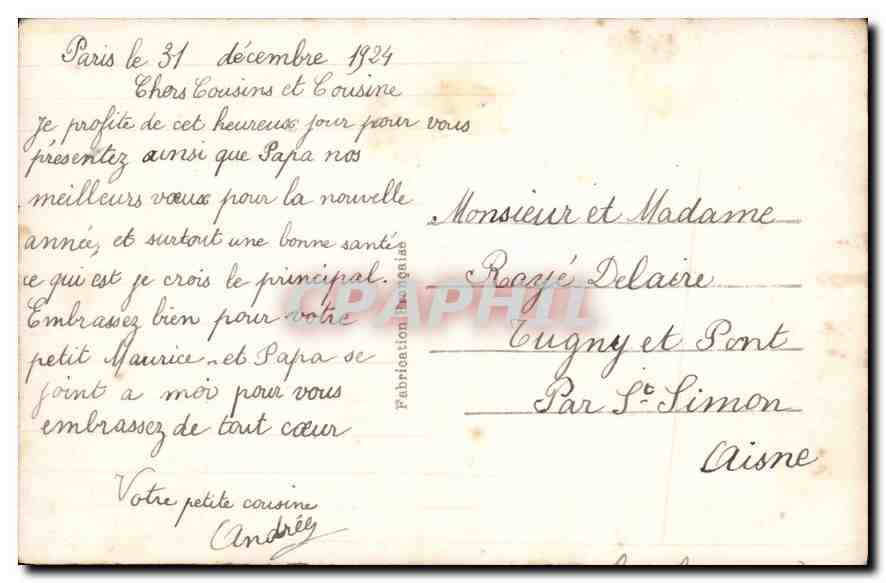 Paris le 31 décembre 1924
Chers Cousins et Cousine
Je profite de cet heureux jour pour vous
présentez ainsi que Papa nos
meilleurs vœux pour la nouvelle
année, et surtout une bonne santé
ce qui est je crois le principal.
Embrassez bien pour votre
petit Maurice et Papa se
joint a moi pour vous
embrassez de tout cœur
Votre petite cousine
Andrée
Fabrication Française
CPAPHIL
Monsieur et Madame
Rayé Delaire
Tugny et Pont
Par St. Simon
Aisne